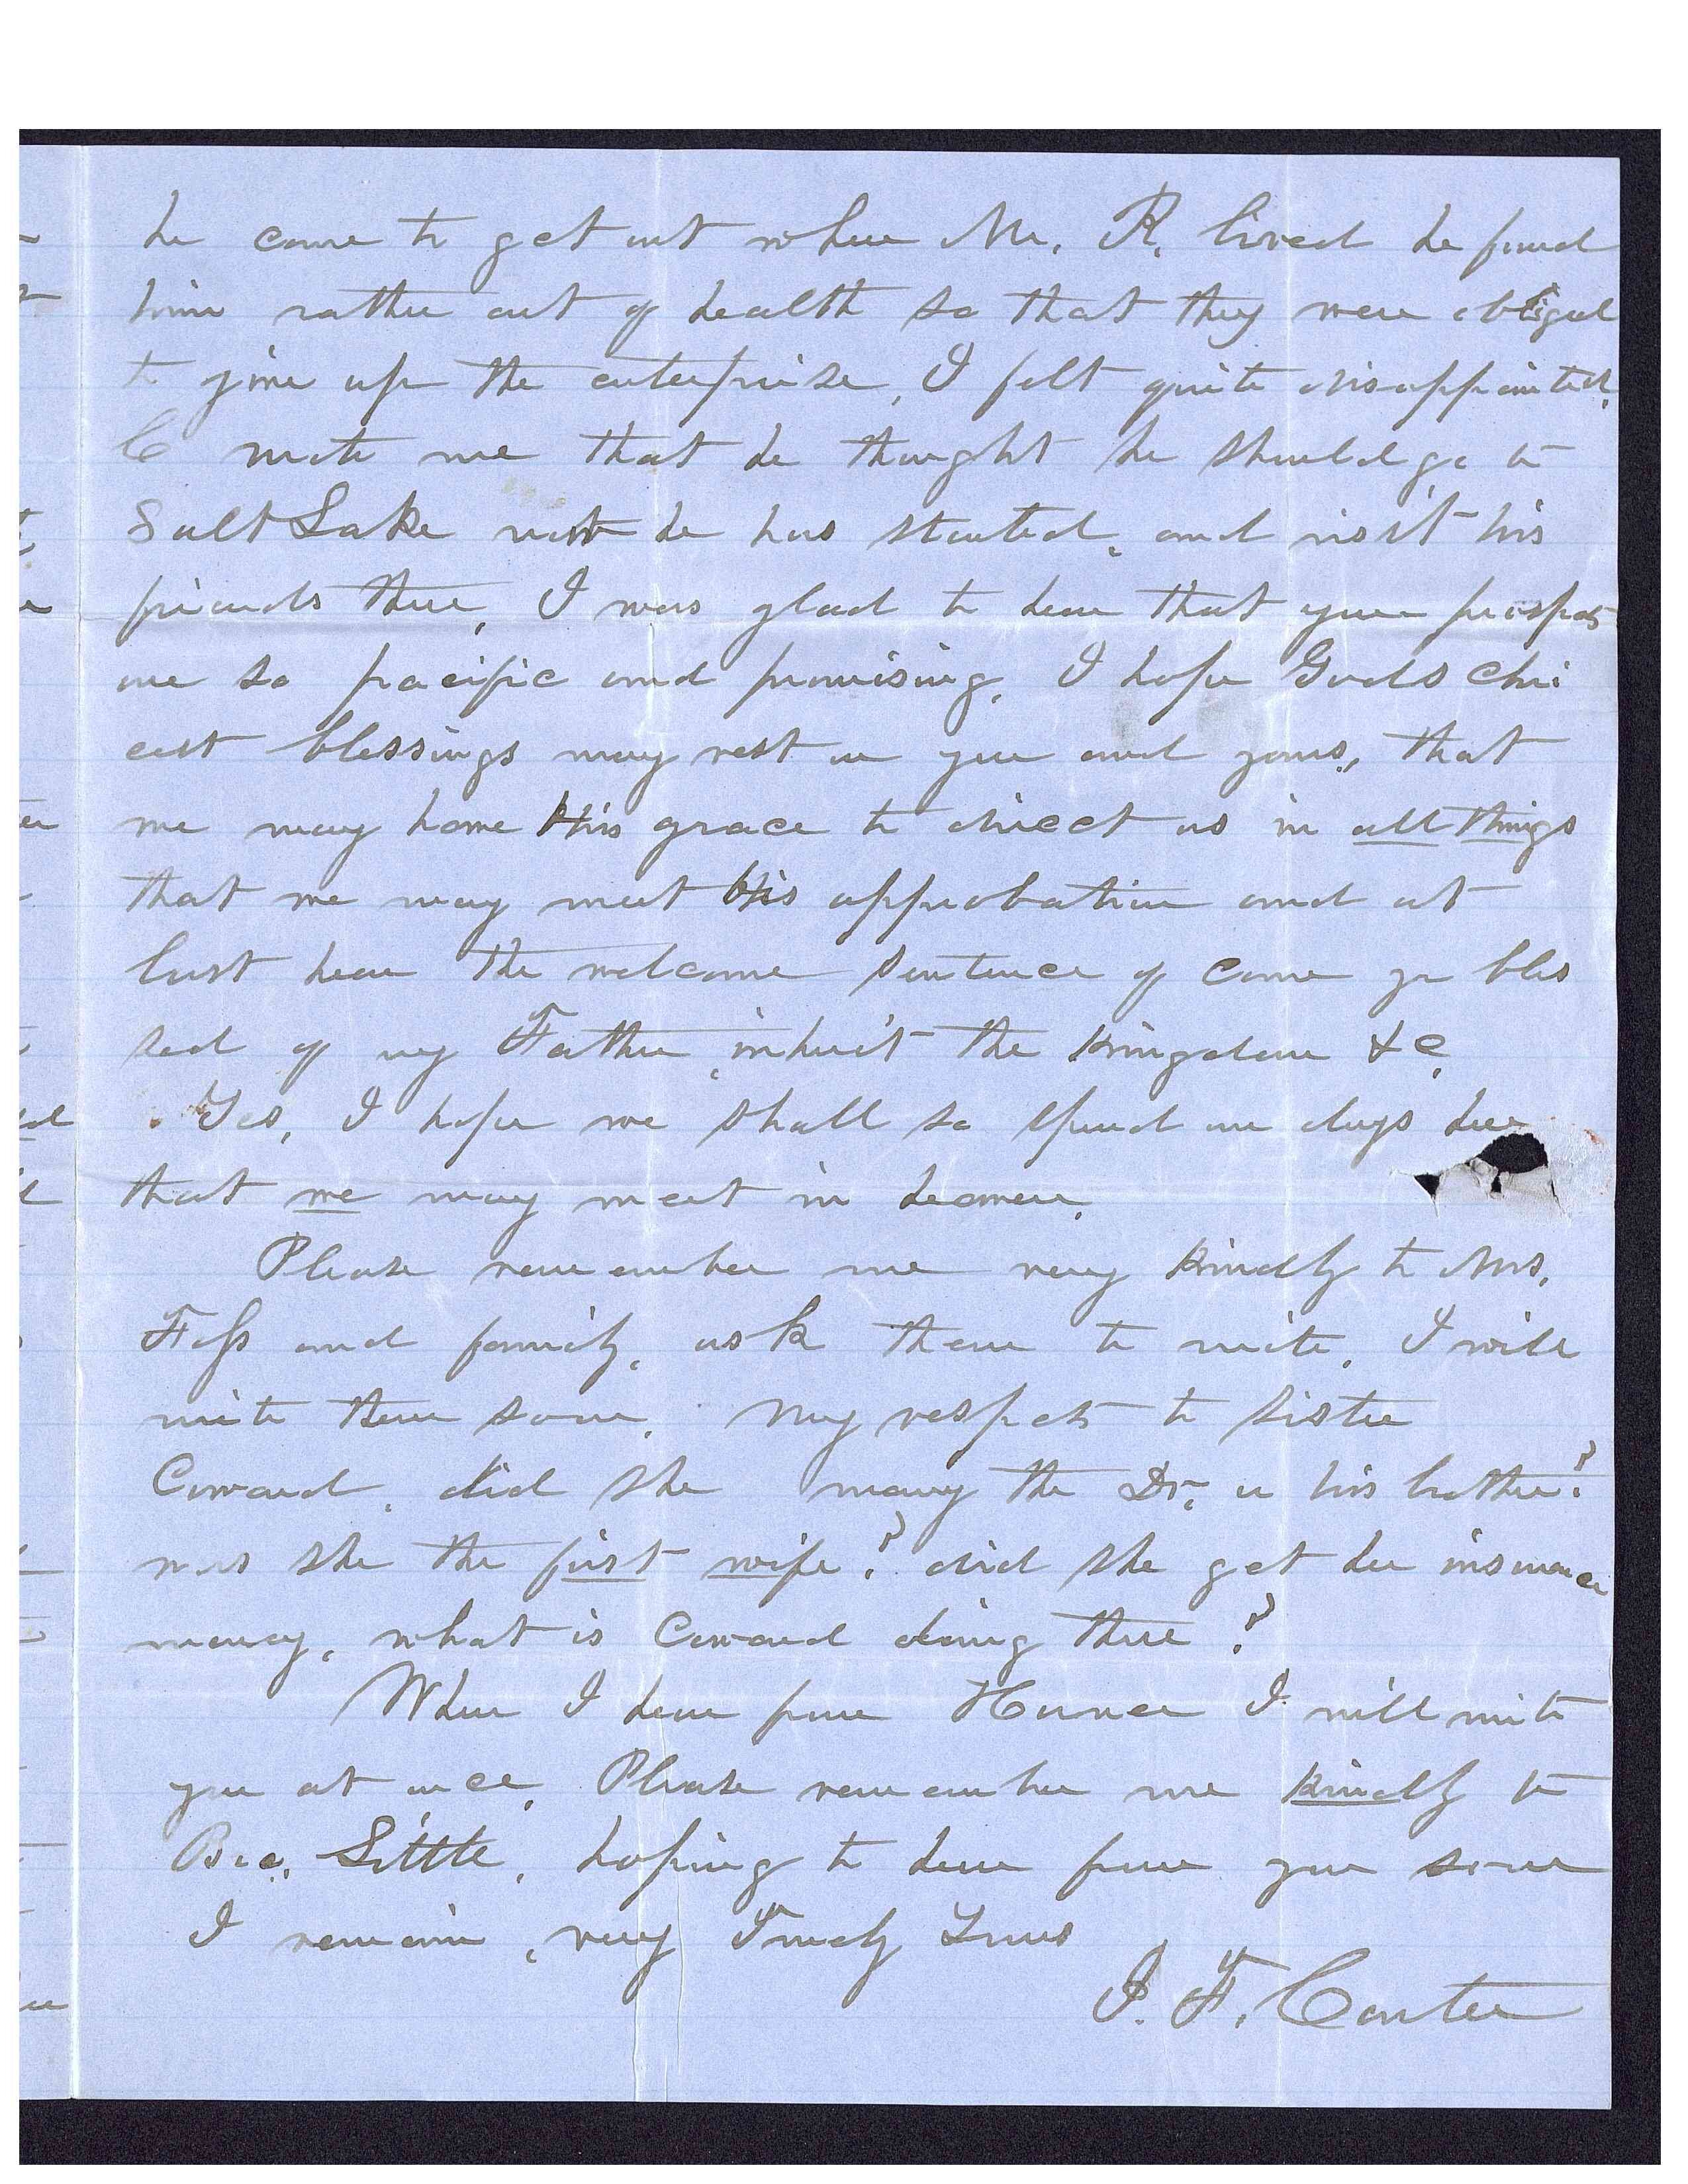 he came to get out where Mr. R. lived he found
him rather out of health so that they were obliged
to give up the enterprise, I felt quite disappointed.
C wrote me that he thought he should go to
Salt Lake now he has started, and visit his
friends there, I was glad to hear that your prospects
are so pacific and promising, I hope Gods choi
cest blessings may rest on you and yours, that
we may have His grace to direct us in all things
that we may meet His approbation and at
last hear the welcome sentence of come ye bles
sed of my Father, inherit the kingdom &c,
Yes, I hope we shall so spend our days here
that we may meet in heaven,
Please remember me very kindly to Mrs.
and family, ask them to write, I will
write them soon, My respects to sister
Coward, did she marry the Dr. or his brother?
was she the first wife? did she get her insurance
money, what is Coward doing there?
When I hear from Horace I will write
you at once, Please remember me kindly to
Bro. Little, hoping to hear from you soon
I remain, very Truly Yours
J. F. Carter